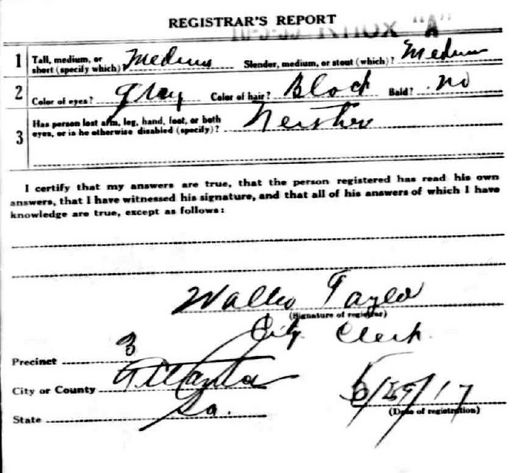 REGISTRAR'S REPORT
"A"
1 Tall, medium, or short (specify which)? Medium Slender, medium, or stout (which)? Medium
2 Color of eyes? Gray Color of hair? Black Bald? No
3 Has person lost arm, leg, hand, foot, or both
eyes, or is he otherwise disabled (specify)? Neither
I certify that my answers are true, that the person registered has read his own
answers, that I have witnessed his signature, and that all of his answers of which I have
knowledge are true, except as follows:
Taylor
(Signature of registrar)
City Clerk
Precinct 3
City or County Atlanta
State Ga.
(Date of registration)